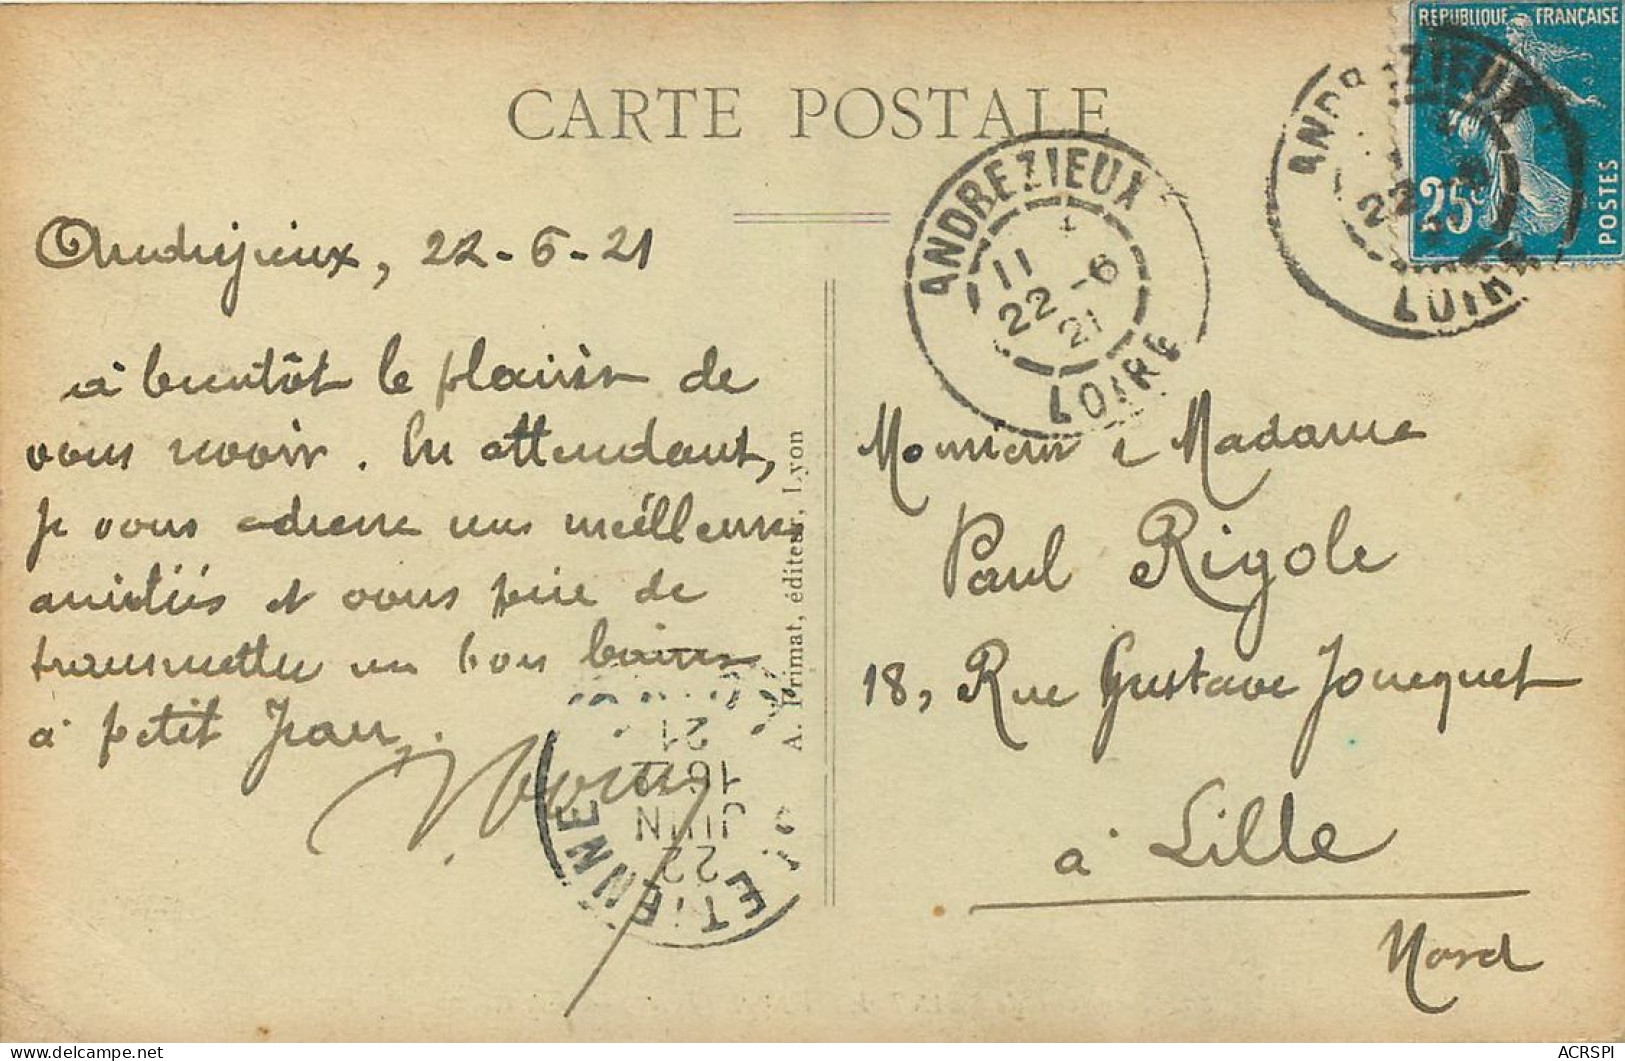 CARTE POSTALE
REPUBLIQUE FRANÇAISE
25c
POSTES
ANDREZIEUX
22
LOIRE
ANDREZIEUX
11
22 - 6
21
LOIRE
Andrézieux, 22-6-21
à bientôt le plaisir de
vous revoir. En attendant,
je vous adresse mes meilleures
amitiés et vous prie de
transmettre un bon baiser
à petit Jean.
A. Primat, éditeur, Lyon
Monsieur & Madame
Paul Rigole
18, Rue Gustave Jouequet
à Lille
Nord
ETIENNE
22
JUIN
21
ACRSPI